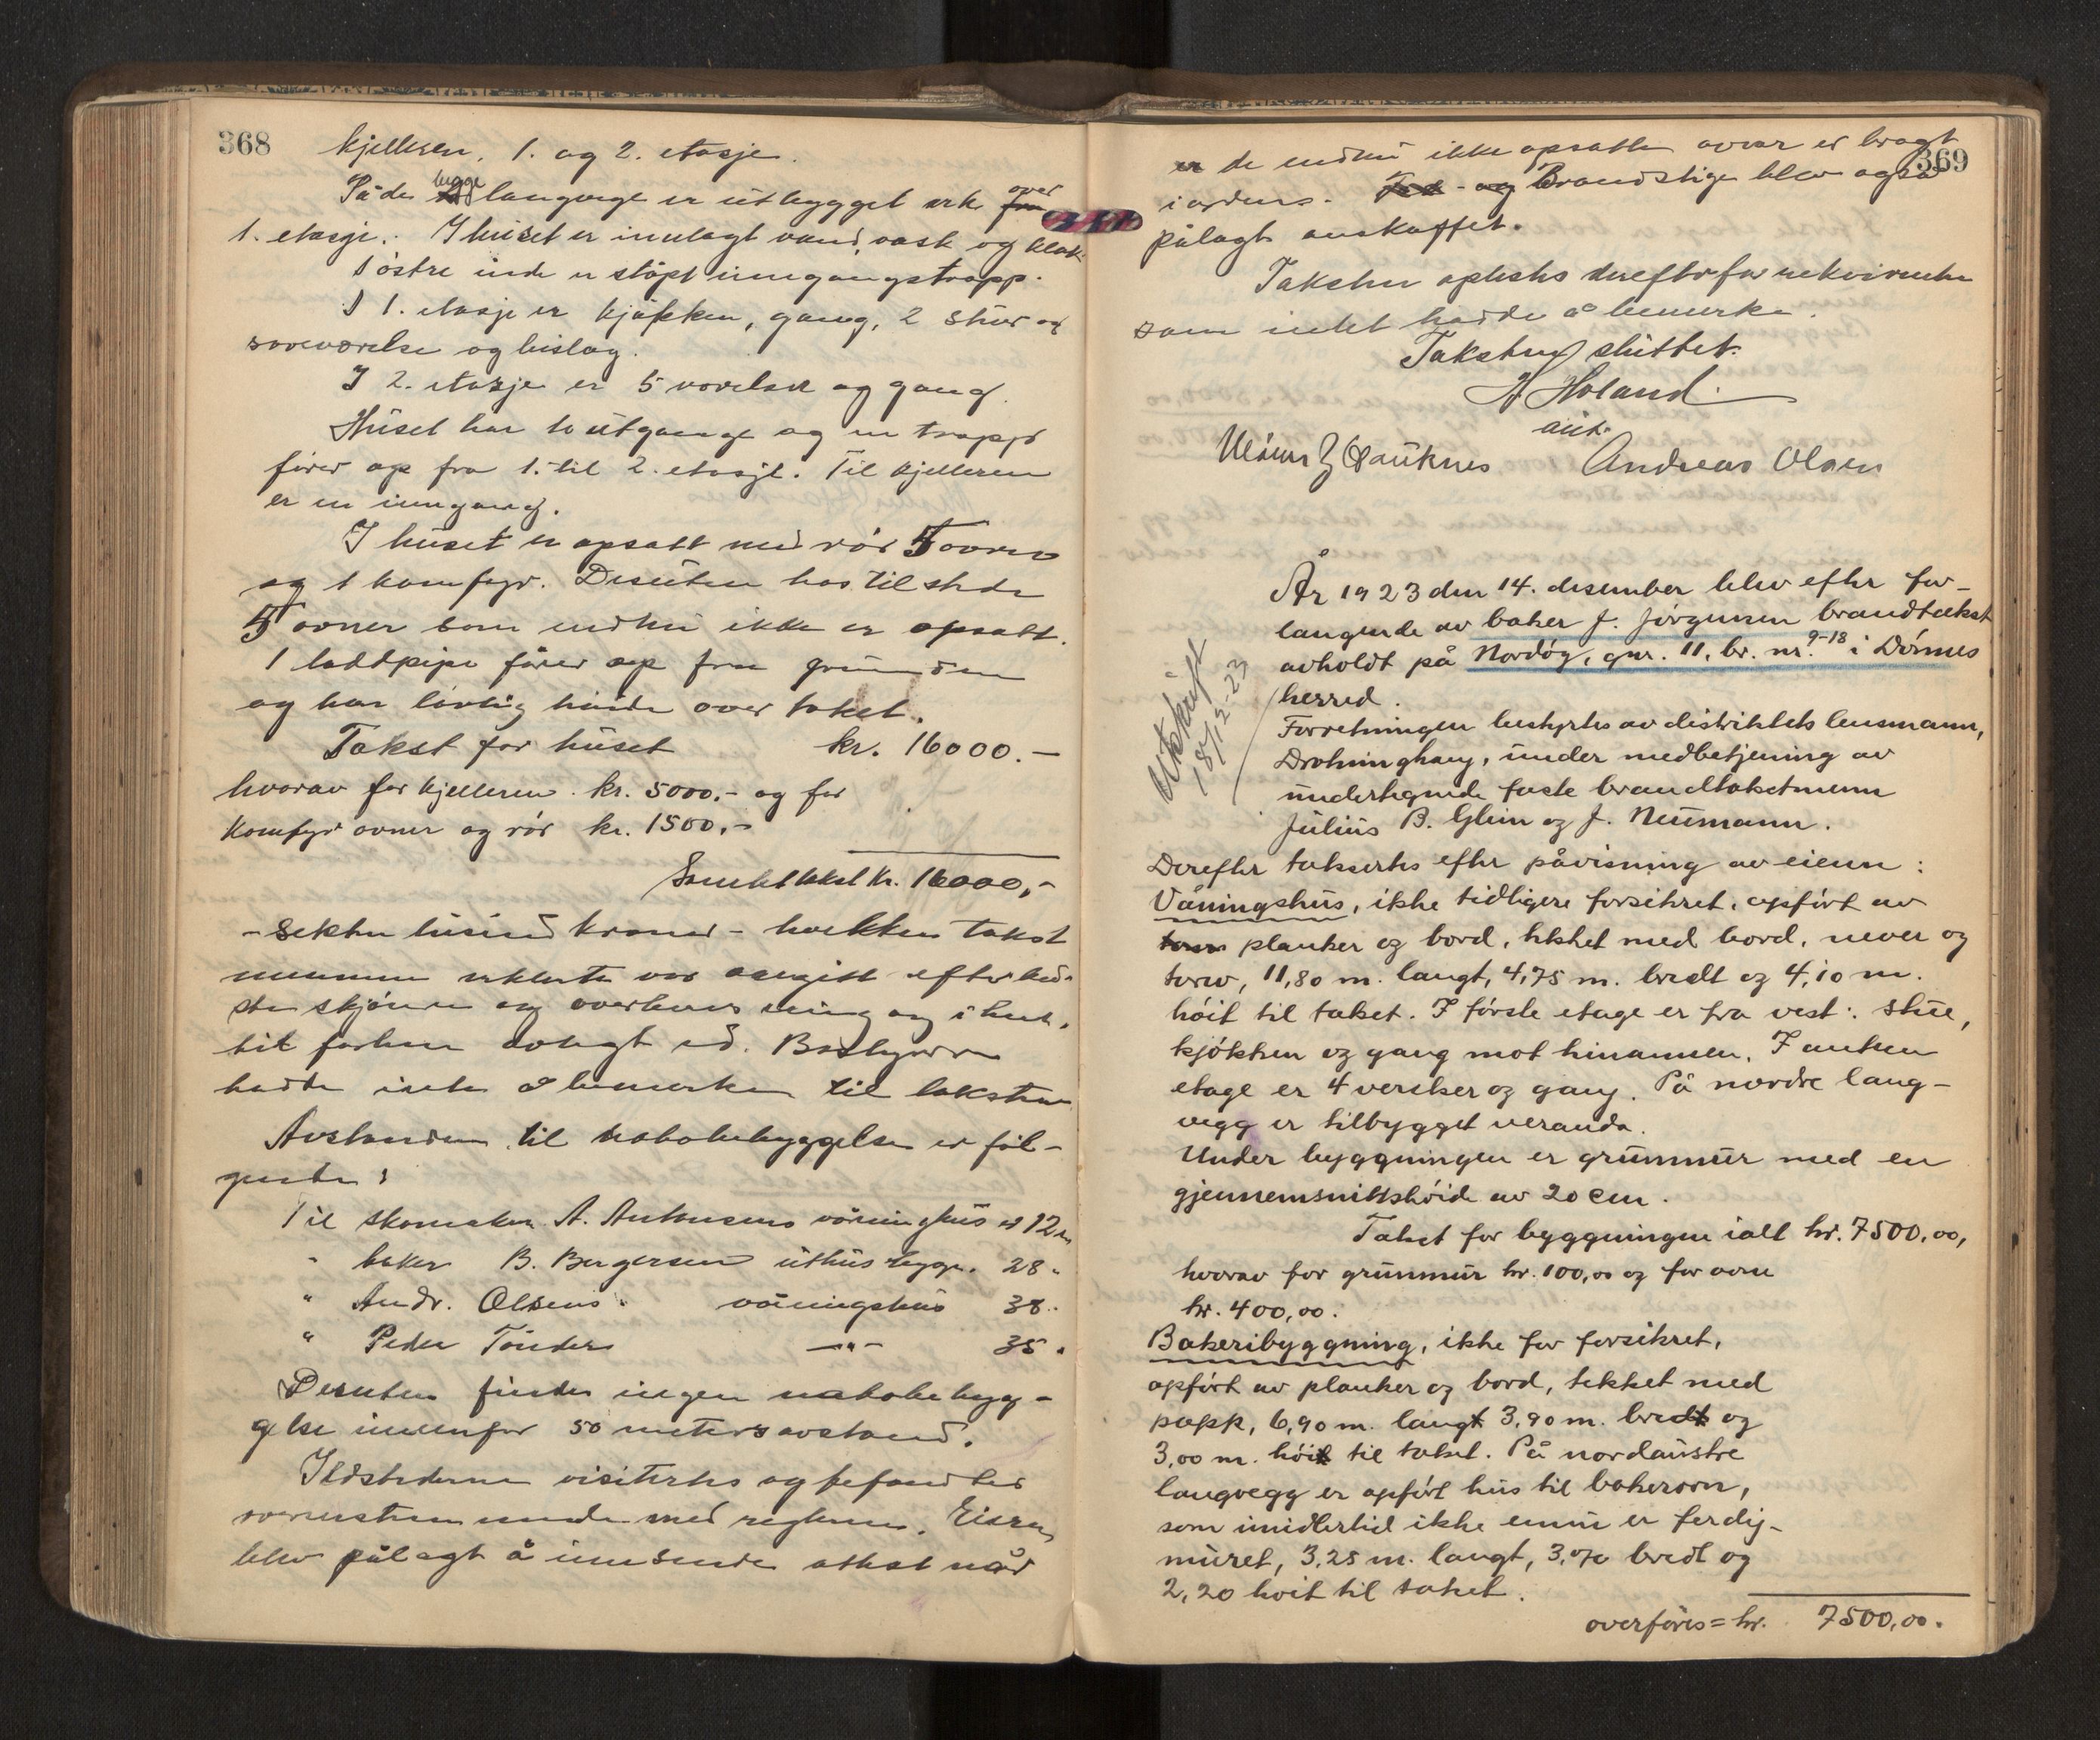 368
kjelleren, 1. og 2. etasje.
På de begge langvegge er utbygget ark over
1. etasje. I huset er innlagt vand, vask og klak
I østre ende er støpt inngangstrapp.
I 1. etasje er kjøkken, gang, 2 stuer og
soveværelse og bislag.
I 2. etasje er 5 værelser og gang.
Huset har to utgange og en trapp
fører op fra 1. til 2. etasje. Til kjelleren
er en inngang.
I huset er opsatt med rør 5 ovner
og 1 komfyr. Desuten has tilstede
5 ovner som endnu ikke er opsatt.
1 loddpipe fører op fra grunden
og har lovlig høide over taket.
Takst for huset kr. 16000.-
hvorav for kjelleren kr. 5000,- og for
Komfyr ovner og rør kr. 1500,-
Samlet takst kr. 16000,-
- seksten tusind kroner - hvilken takst
mennene erklærte var avgitt efter bed-
ste skjønn og overbevisning og i hen-
hit forhen avlagt ed. Bestyreren
hadde intet å bemerke til taksten
Avstanden til nabobebyggelsen er føl-
gende:
Til skomaker A. Antonsens våningshus er 12 m
" baker B. Bergersen uthusbygn. 28 "
" Andr. Olsens våningshus 38 "
" Peder Tønders —"— 35 "
Desuten findes ingen nabobebygg-
gelse innenfor 50 meters avstand.
Ildstederne visitertes og befandtes
overensstemmende med reglene. Eieren
blev pålagt å innsende attest når
369
er de endnu ikke opsatte ovner er bragt
i ordens. Brandstige blev også
pålagt anskaffet.
Taksten oplestes derefter for rekvirenten
som intet hadde å bemerke.
Taksten sluttet.
H Holand
aut.
Hauknes Andreas Olsen
År 1923 den 14. desember blev efter for-
langende av baker J. Jørgensen brandtakst
avholdt på Nordøg, gnr. 11, br. nr. 9-18 i Dønnes
herred.
Utskrift
18/12-23
Forretningen bestyrtes av distriktets lensmann,
Dronninghaug, under medbetjening av
undertegnede faste brandtakstmenn
Julius B. Glein og J. Neumann.
Derefter taksertes efter påvisning av eieren:
Våningshus, ikke tidligere forsikret, opført av
planker og bord, tekket med bord, never og
torv, 11,80 m. langt, 4,75 m. bredt og 4,10 m.
høit til taket. I første etage er fra vest: stue,
kjøkken og gang mot hinannen. I annen
etage er 4 verelser og gang. På nordre lang-
vegg er tilbygget veranda.
Under byggningen er grunnmur med en
gjennemsnittshøide av 20 cm.
Takst for byggningen ialt kr. 7500,00,
hvorav for grunnmur kr. 100,00 og for ovne
kr. 400,00.
Bakeribyggning, ikke før forsikret,
opført av planker og bord, tekket med
papp, 6,90 m. langt 3,90 m. bredt og
3,00 m. høit til taket. På nordaustre
langvegg er opført hus til bakerovn,
som imidlertid ikke ennu er ferdig-
muret, 3,25 m. langt, 3,70 bredt og
2,20 høit til taket.
overføres = kr. 7500,00.